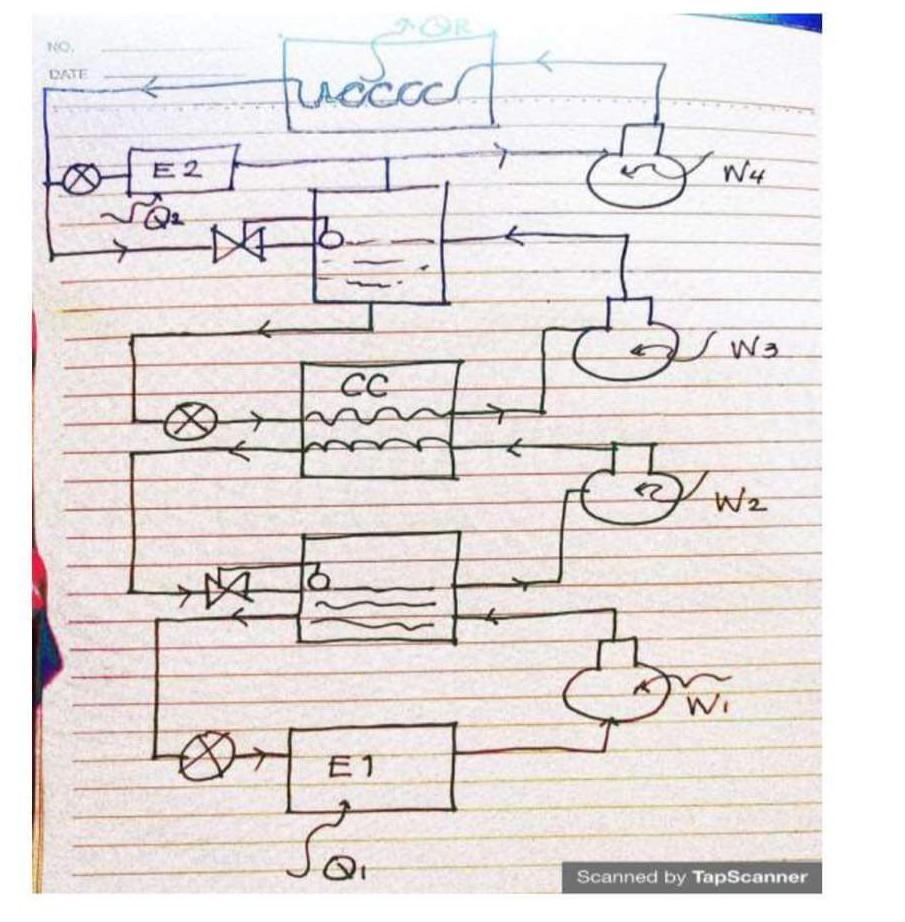 QR
NO.
DATE
E2
W4
Q2
W3
CC
W2
W1
E1
Q1
Scanned by TapScanner